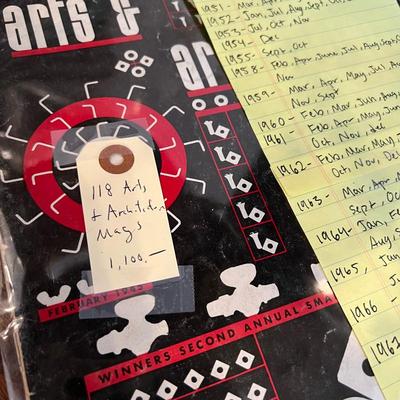 arts &
ar
118 Arts
+ Architecture
Mags
1,100.—
FEBRUARY 1945
WINNERS SECOND ANNUAL SMA
1951 - Mar, Apr
1952 - Jan, Jul, Aug, Sept, Oct
1953 - Jul, Oct, Nov
1954 - Dec
1955 - Sept, Oct
1958 - Feb, Apr, June, Jul, Aug, Sept
Nov
1959 - Mar, Apr, May, Jul, Aug
Nov, Sept
1960 - Feb, Mar, Jun, Aug
1961 - Feb, Apr, May, Jun
Oct, Nov, Dec
1962 - Feb, Mar, May, J
Oct, Nov, De
1963 - Mar, Apr, M
Sept, Oc
1964 Jan, Fe
Aug, S
1965, Jun
Ju
1966 -
1967